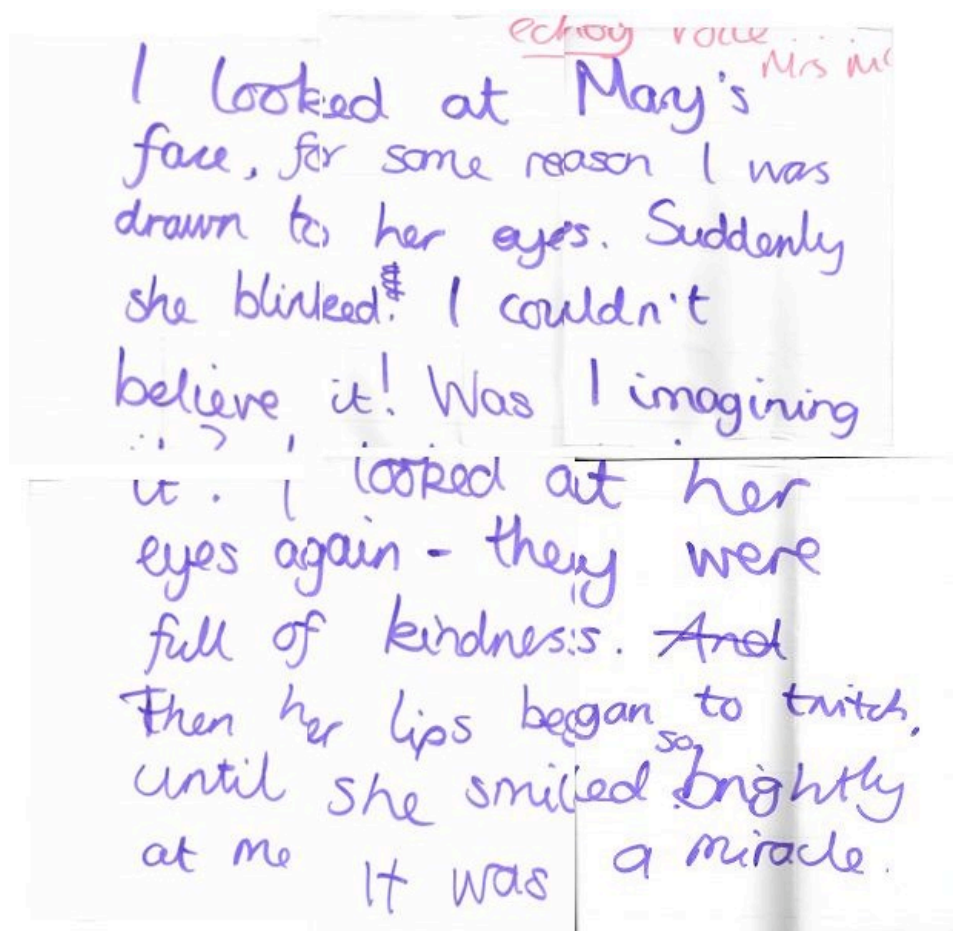 echoy voice
Mrs
I looked at Mary's
face, for some reason I was
drawn to her eyes. Suddenly
she blinked! I couldn't
believe it! Was I imagining
it? I looked at her
eyes again - they were
full of kindness. And
Then her lips began to twitch,
until she smiled so brightly
at me It was a miracle.